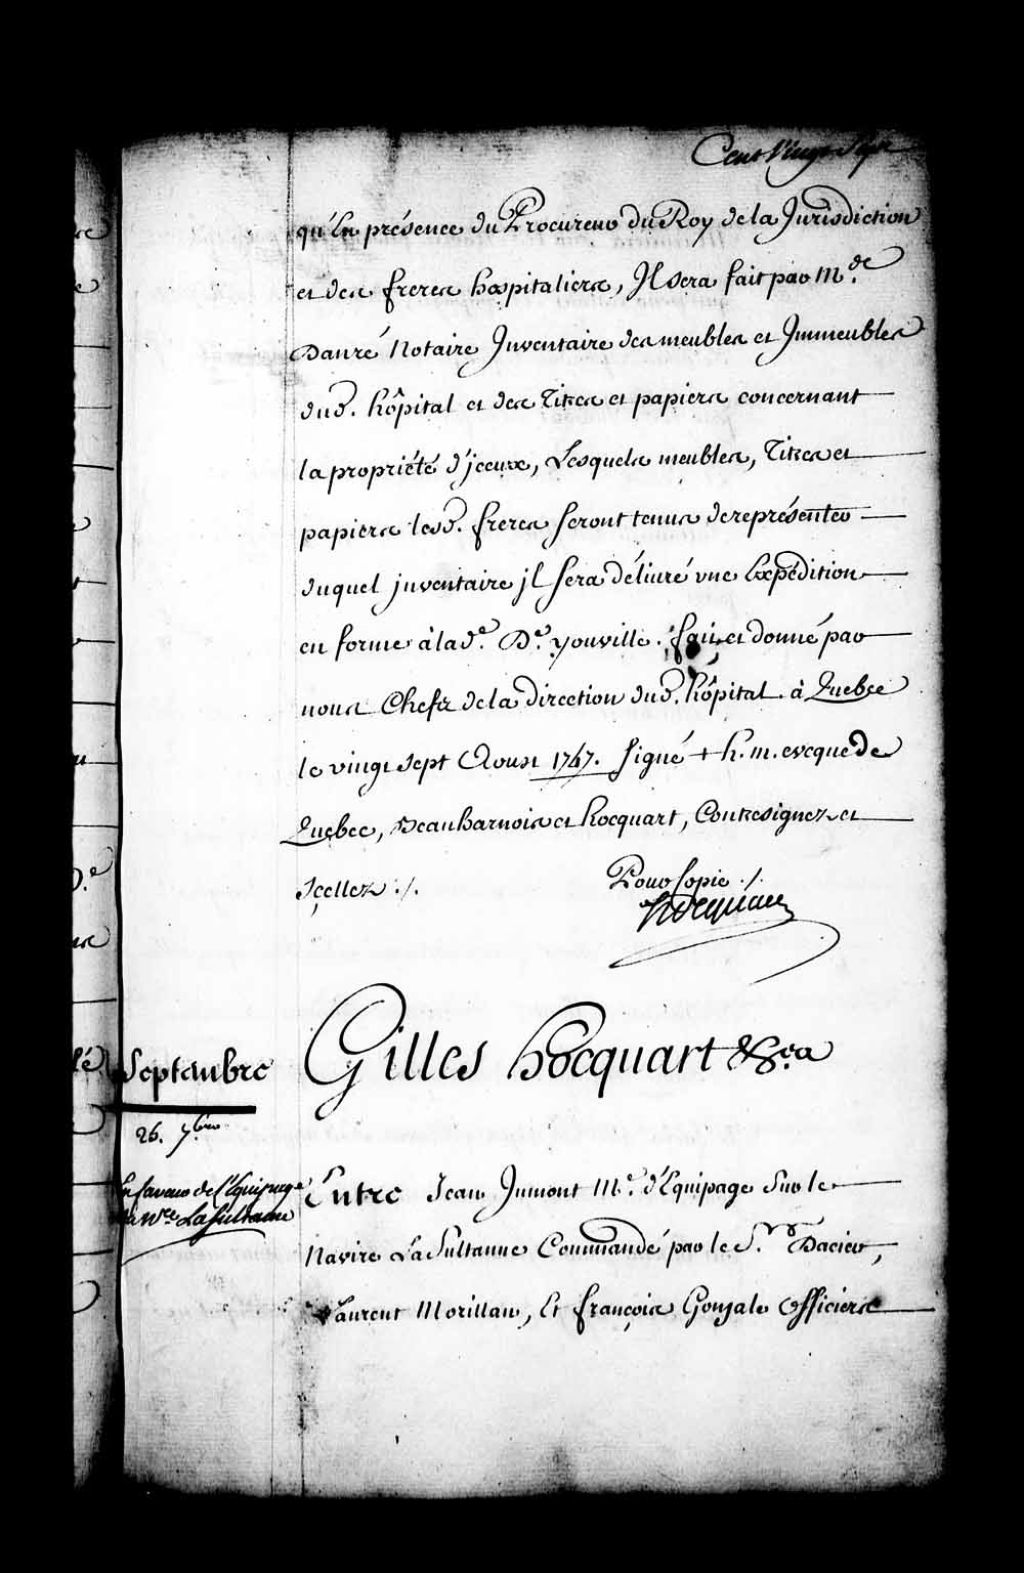 Cent Vingt Sept
qu'En présence du Procureur du Roy de la Jurisdiction
et des freres hospitaliers, Il sera fait par M.de
Danré Notaire Inventaire des meubles et Immeubles
dud. hôpital et des Titres et papiers concernant
la propriété d'jceux, Lesquels meubles, Titres et
papiers lesd. freres seront tenus de representer
duquel jnventaire jl sera délivré une Expédition
en forme à lad.e D.e youville. fait et donné par
nous Chefs de la direction dud. hôpital à Quebec
le vingt sept Aoust 1747. signé + h. m. evcque de
Quebec, Beauharnois et hocquart, Contresignez et
sçellez ./.
Pour Copie ./.
Hocquart
Septembre
Gilles hocquart &c.a
26. 7.bre
En faveur de l'Equipage
du N.re La Sultanne
Entre Jean Jumont M.e d'Equipage sur le
Navire La Sultanne Commandé par le S.r Dacier,
Laurent Morillau, Et françois Gonzale officiers